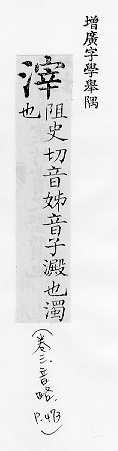 增廣字學舉隅
滓 阻史切音姊音子澱也濁
也
(卷三.音略.
P.473)